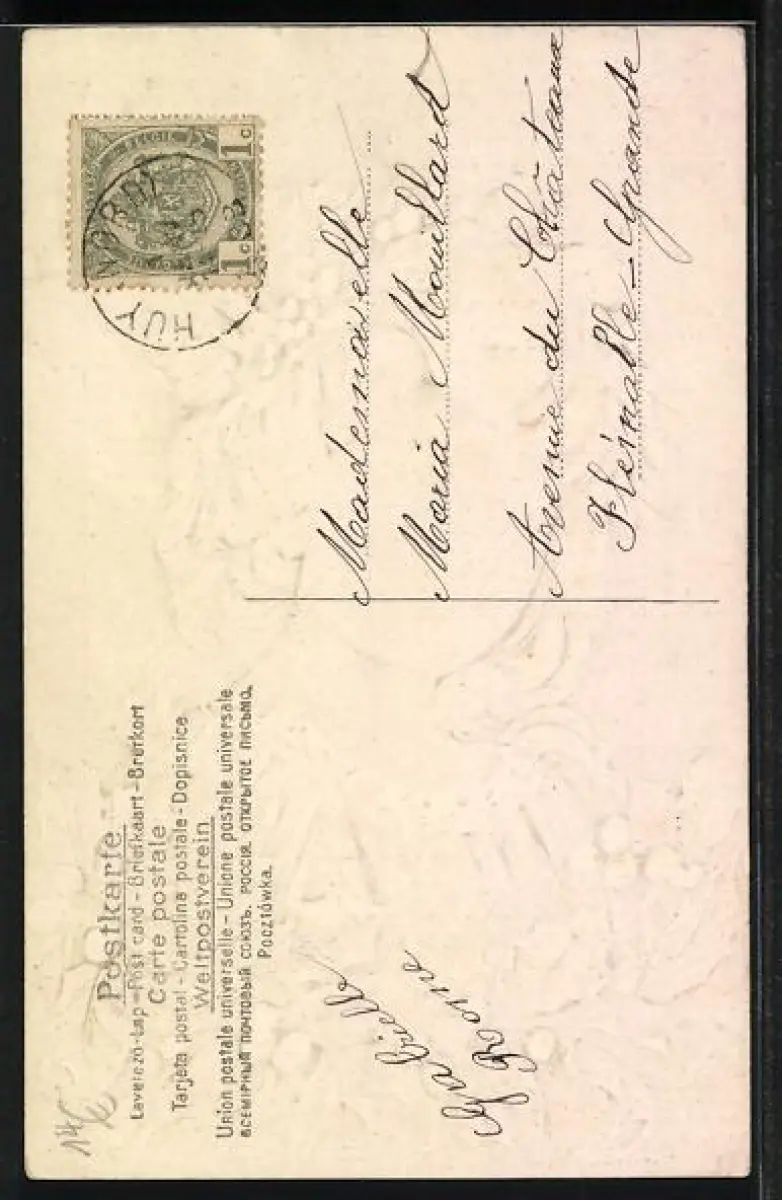 Postkarte
Levelező-Lap - Post card - Briefkaart - Brefkort
Carte postale
Tarjeta postal - Cartolina postale - Dopisnice
Weltpostverein
Union postale universelle - Unione postale universale
ВСЕМІРНЫЙ ПОЧТОВЫЙ СОЮЗЪ. РОССІЯ. ОТКРЫТОЕ ПИСЬМО.
Pocztówka.
1c BELGIE 1c
HUY
Mademoiselle
Maria Mouillard
Avenue du Château
Fleimalle-Grande
Gabrielle